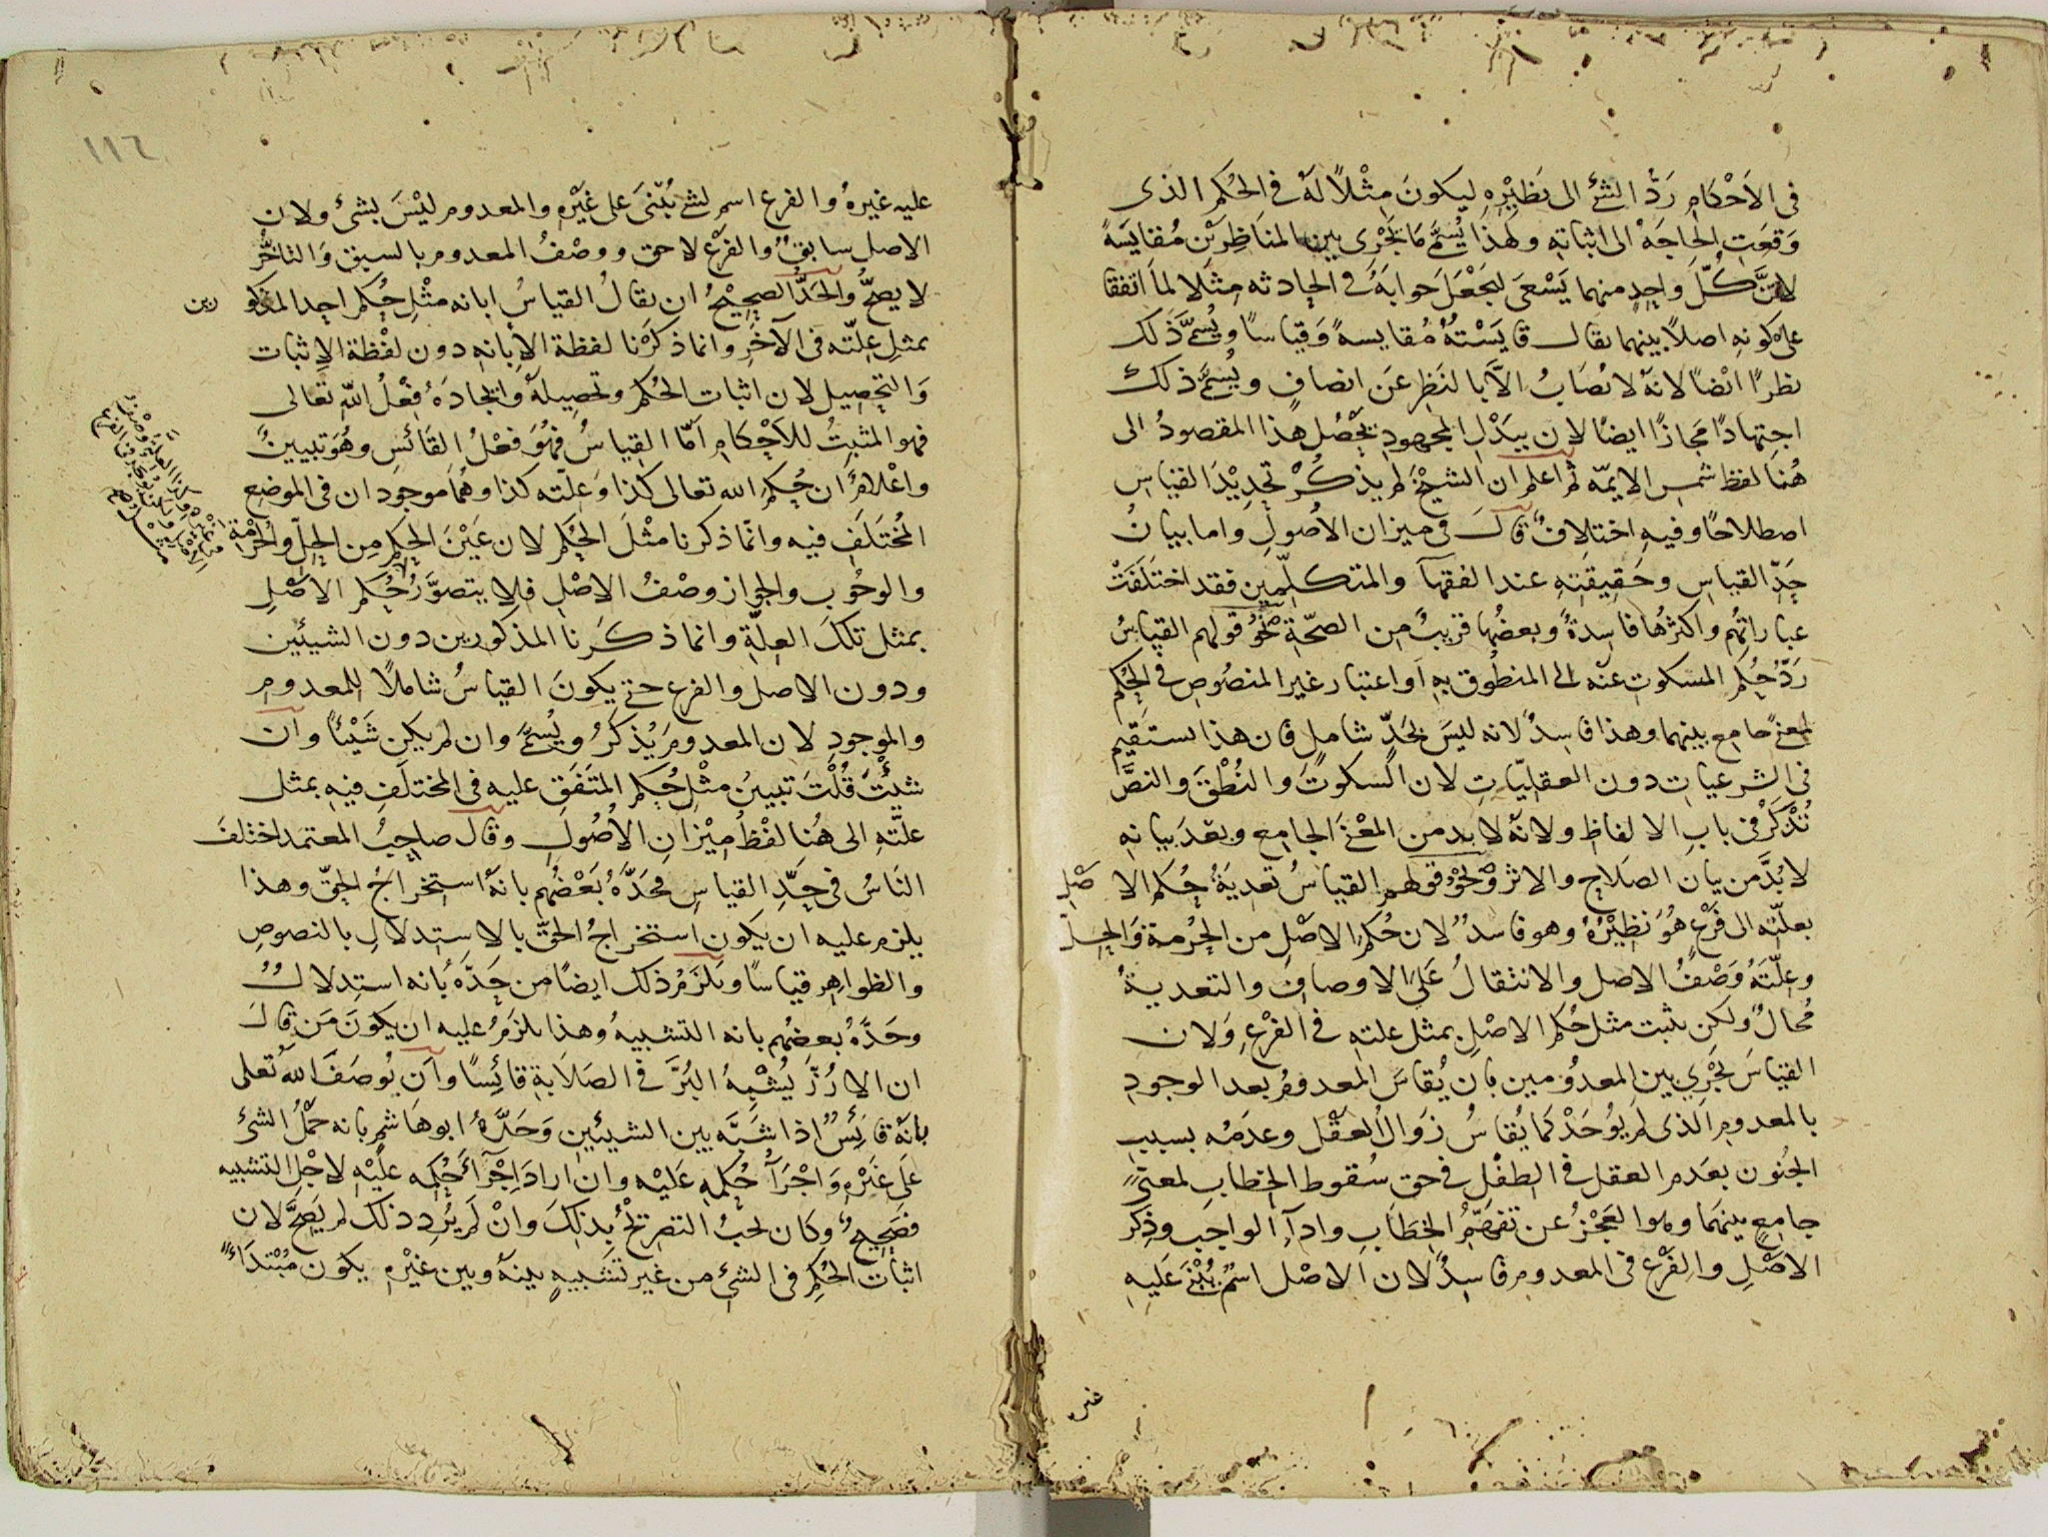 فى الاَحْكَامِ رَدُّ الشئ الى نَظِيْرِهِ ليكونَ مِثْلاً لَهُ فى الحُكمِ الذى
وَقعَتِ الحاجَةُ الى اثباتهِ ولهذا يُسمَّى مَا يَجْرِى بين المناظِرِيْن مُقايَسَةً
لاَنَّ كُلَّ واحِدٍ منهما يَسْعَى ليَجْعَلَ جوابَهُ فى الحادثه مِثْلا لما اتفقا
على كونهِ اصلاً بينهما يقال قايَسْتُهُ مُقايسةً وَقِياسًا ويُسمَّى ذَلك
نظرًا ايْضًا لانهُ لا يُصَابُ الاَّ بالنَظرِ عَن انصافٍ ويُسمَّى ذلك
اجتِهادًا مَجازًا ايضًا لان ببَذْلِ المجهودِ يَحْصُل هذا المقصودُ الى
هُنا لفظ شمس الايمّه ثم اعلم ان الشيْخَ لم يذكُرْ تحدِيْدَ القياسِ
اصطلاحًا وفيهِ اختِلافٌ قالَ فى ميزان الاُصُولِ واما بيانُ
حَدِّ القياسِ وحَقِيقَتِهِ عند الفقهآ والمتكلّمين فقد اختلفَتْ
عباراتُهم واكثرُها فاسِدةٌ وبعضُها قريبٌ من الصحّةِ نحْوُ قولهم القياسُ
رَدُّ حُكمِ المسكوتِ عنْه الى المنطُوق بهِ اَو اعتبار غير المنصُوصِ فى الحُكم
لمعنًى جامع بينهما وهذا فاسِدٌ لانه ليسَ بحَدٍّ شاملٍ فان هذا يستَقِيم
فى الشرعياتِ دون العقليّاتِ لان السكوتَ والنُطْقَ والنصَّ
تُذْكَرُ فى بابِ الالفاظِ ولانّه لا بد من المعْنَى الجامع وبعْدَ بيانهِ
لا بُدَّ من بيان الصَلاحِ والاثر ونَحْوُ قولهم القياسُ تعديَةُ حُكم الاصْلِ
بعلّتهِ الى فَرْعٍ هُوَ نظيْرُهُ وهو فاسدٌ لان حُكمَ الاصْلِ من الحُرمة وَالحِلِّ
وعِلّتَهُ وَصْفُ الاصلِ والانتقالُ عَلَى الاوصافِ والتعديةُ
مُحالٌ ولكن يثبت مثل حُكم الاصْلِ بمثل علته فى الفَرْعِ وَلان
القياسَ يَجْرِي بين المعدُوْمين بان يُقاسَ المعدومُ بعد الوجودِ
بالمعدومِ الَّذى لم يُوْجَدْ كما يُقاسُ زَوالُ العَقْلِ وعدَمُه بسببِ
الجُنون بعَدَم العقل فى الطِفْلِ فى حق سُقوط الخِطابِ لمعنًى
جامعٍ بينهما وهو العَجْزُ عن تفهّمِ الخِطَابِ وادآءِ الواجبِ وذِكرُ
الاصْلِ والفَرْعِ فى المعدومِ فاسِدٌ لان الاصْل اسْمٌ يُبْنَى عَليهِ
غيره
١١٦
عليه غيرهُ والفرع اسم لشئ يُبْنَى على غَيْرِهِ والمعدوم ليْسَ بشئ ولان
الاصل سابقٌ والفرْع لاحق ووصْفُ المعدوم بالسبق وَالتأخّر
لا يصحُّ والحَدُّ الصحِيْحُ ان يقالُ القياسُ ابانة مثْلِ حُكم احد المذكورين
بمثلِ عِلّته فى الآخَرِ وانما ذكرْنا لفظة الاِبانهِ دون لفْظة الاِثبات
وَالتحصِيل لان اثبات الحُكم وتحصِيلهُ وايجادَهُ فِعْلُ اللّهِ تعالى
فهو المثبتُ للاَحْكامِ اَمّا القِياسُ فهُوَ فِعْلُ القَائسِ وهُوَ تبيينٌ
واعْلامٌ ان حُكمَ الله تعالى كذا وَعلّته كذا وهُمَا موجودان فى الموضِع
المُختَلَفِ فيه وانّما ذكرنا مثْلَ الحُكم لان عَيْنَ الحُكمِ من الحِلّ والحُرْمة
والوجُوب والجواز وصْفُ الاصْلِ فلا يتصوَّرُ حُكم الاصْلِ
بمثل تلكَ العِلّةِ وانما ذكَرنا المذكورين دون الشيئين
ودون الاصل والفرع حتى يكونَ القياسُ شاملاً للمعدومِ
والموْجودِ لان المعدومَ يُذكَرُ ويُسمَّى وان لم يكن شَيْئًا وان
شيْتَ قُلْتَ تبيينُ مثْلِ حُكم المتَفَق عليه فى المختَلَفِ فيهِ بمثل
علّتهِ الى هُنا لفْظُ مِيْزَانِ الاُصُولِ وقالَ صاحِبُ المعتمد اختلفَ
النَاسُ فى حَدِّ القياسِ فحَدَّهُ بَعْضُهم بانهُ استخراجُ الحقّ وهذا
يلزم عليه ان يَكون استخراجُ الحَقّ بالاستِدلالِ بالنصوصِ
والظواهر قياسًا ويَلْزَمُ ذلك ايضًا من حَدَّهُ بأنه استدلالٌ
وحَدَّهُ بعضُهم بانه التشبيهُ وهذا يلزَمُ عليه ان يكونَ مَن قالَ
ان الارُزَّ يُشْبِهُ البُرَّ فى الصَلاَبةِ قائِسًا وان يُوصَفَ اللهُ تعلى
بانّه قائِسٌ اذا شبَّه بين الشيئين وَحَدَّهُ ابوهاشمٍ بانه حَمْلُ الشئ
عَلى غَيْرِهِ وَاجْرَآءُ حُكمِهِ عَليْه وان ارادَ اِجْرآءَ حُكمه عليْهِ لاجْل التشبيه
فصَحِيحٌ وكَان يَجبُ التصريحُ بذلِكَ وانْ لَم يُرِدِ ذلك لم يَصِحَّ لان
اثباتَ الحُكمِ فى الشئ من غير تشبيهٍ بينهُ وبين غيْرِهِ يكون مُبْتدَاءً